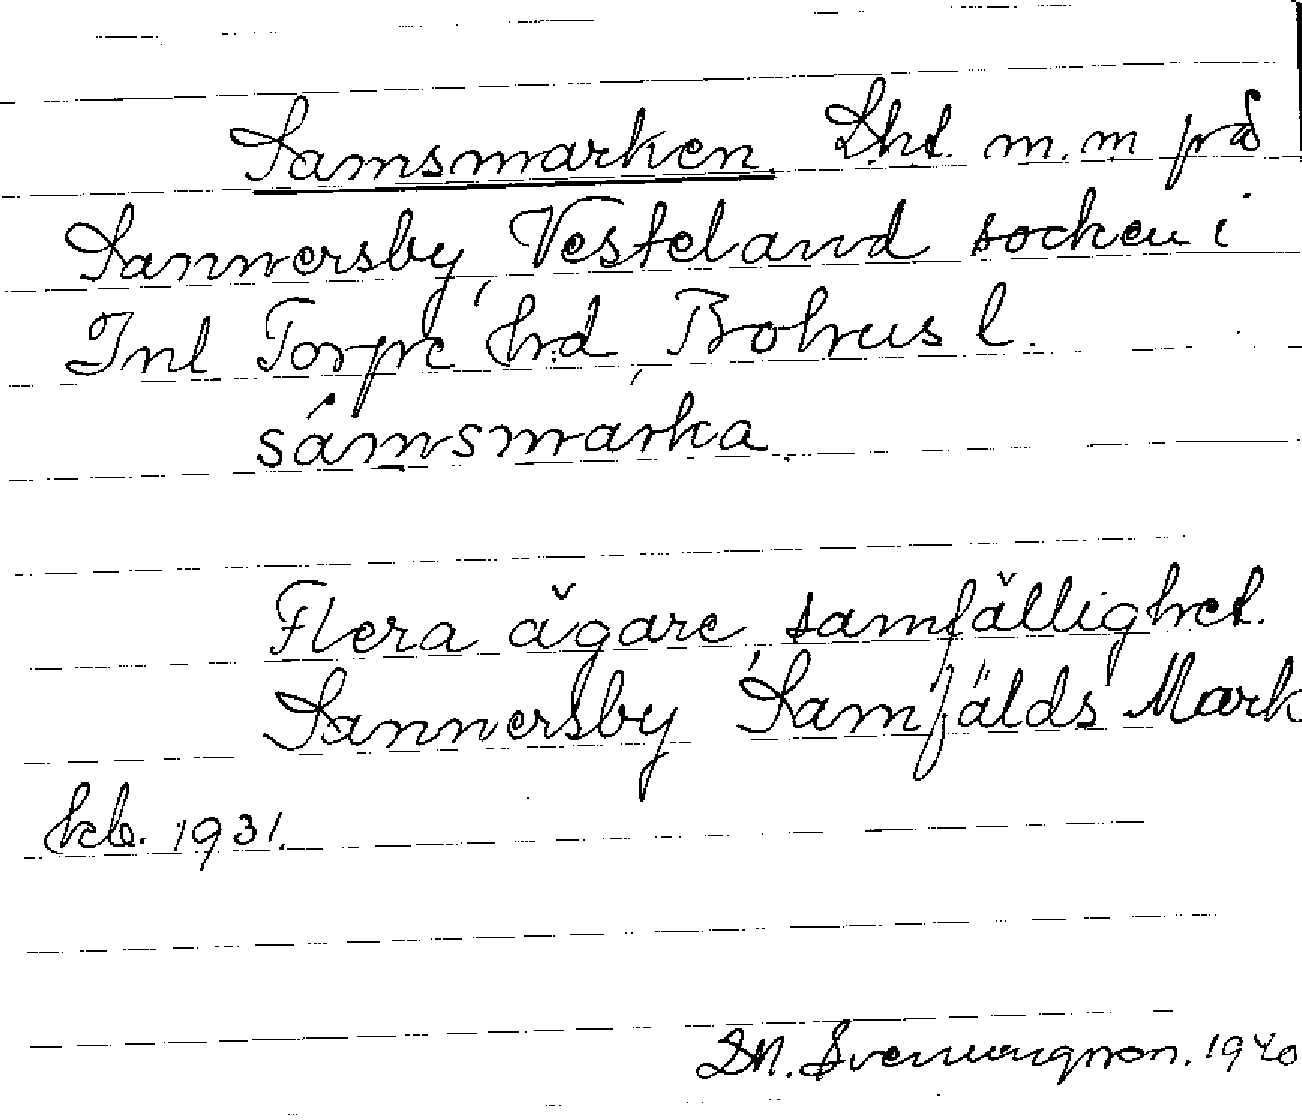 Samsmarken. Lht. m.m på
Sannersby, Vesteland socken i
Inl Torpe hrd, Bohusl.
sámsmarka.
Flera ägare, samfällighet.
Sannersby Samfälds Mark
kb. 1931.
D.N. 1940